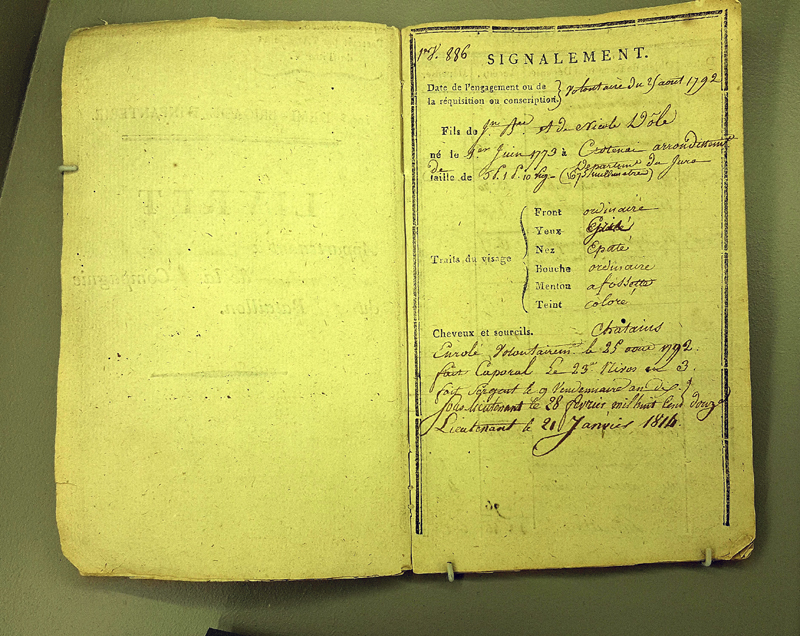 886
SIGNALEMENT.
Date de l'engagement ou de
la réquisition ou conscription. } volontaire du 25 aout 1792
Fils de Jn Bte et de Nicole Dôle
né le 1er Juin 1773 à Crotenai arrondissemt
de Departemt du Jura
taille de 5 P. 1 P. 10 lig. (1675 millimetres)
Traits du visage
Front ordinaire
Yeux
Nez Epaté
Bouche ordinaire
Menton a fossette
Teint coloré
Cheveux et sourcils. Chatains
Enrolé Volontairemt le 25 aout 1792.
fait Caporal Le 23 Nivos an 3.
fait Sergent le 9 Vendemiaire an 9
Sous lieutenant le 28 fevrier mil huit Cent douze
Lieutenant le 21 Janvier 1814.